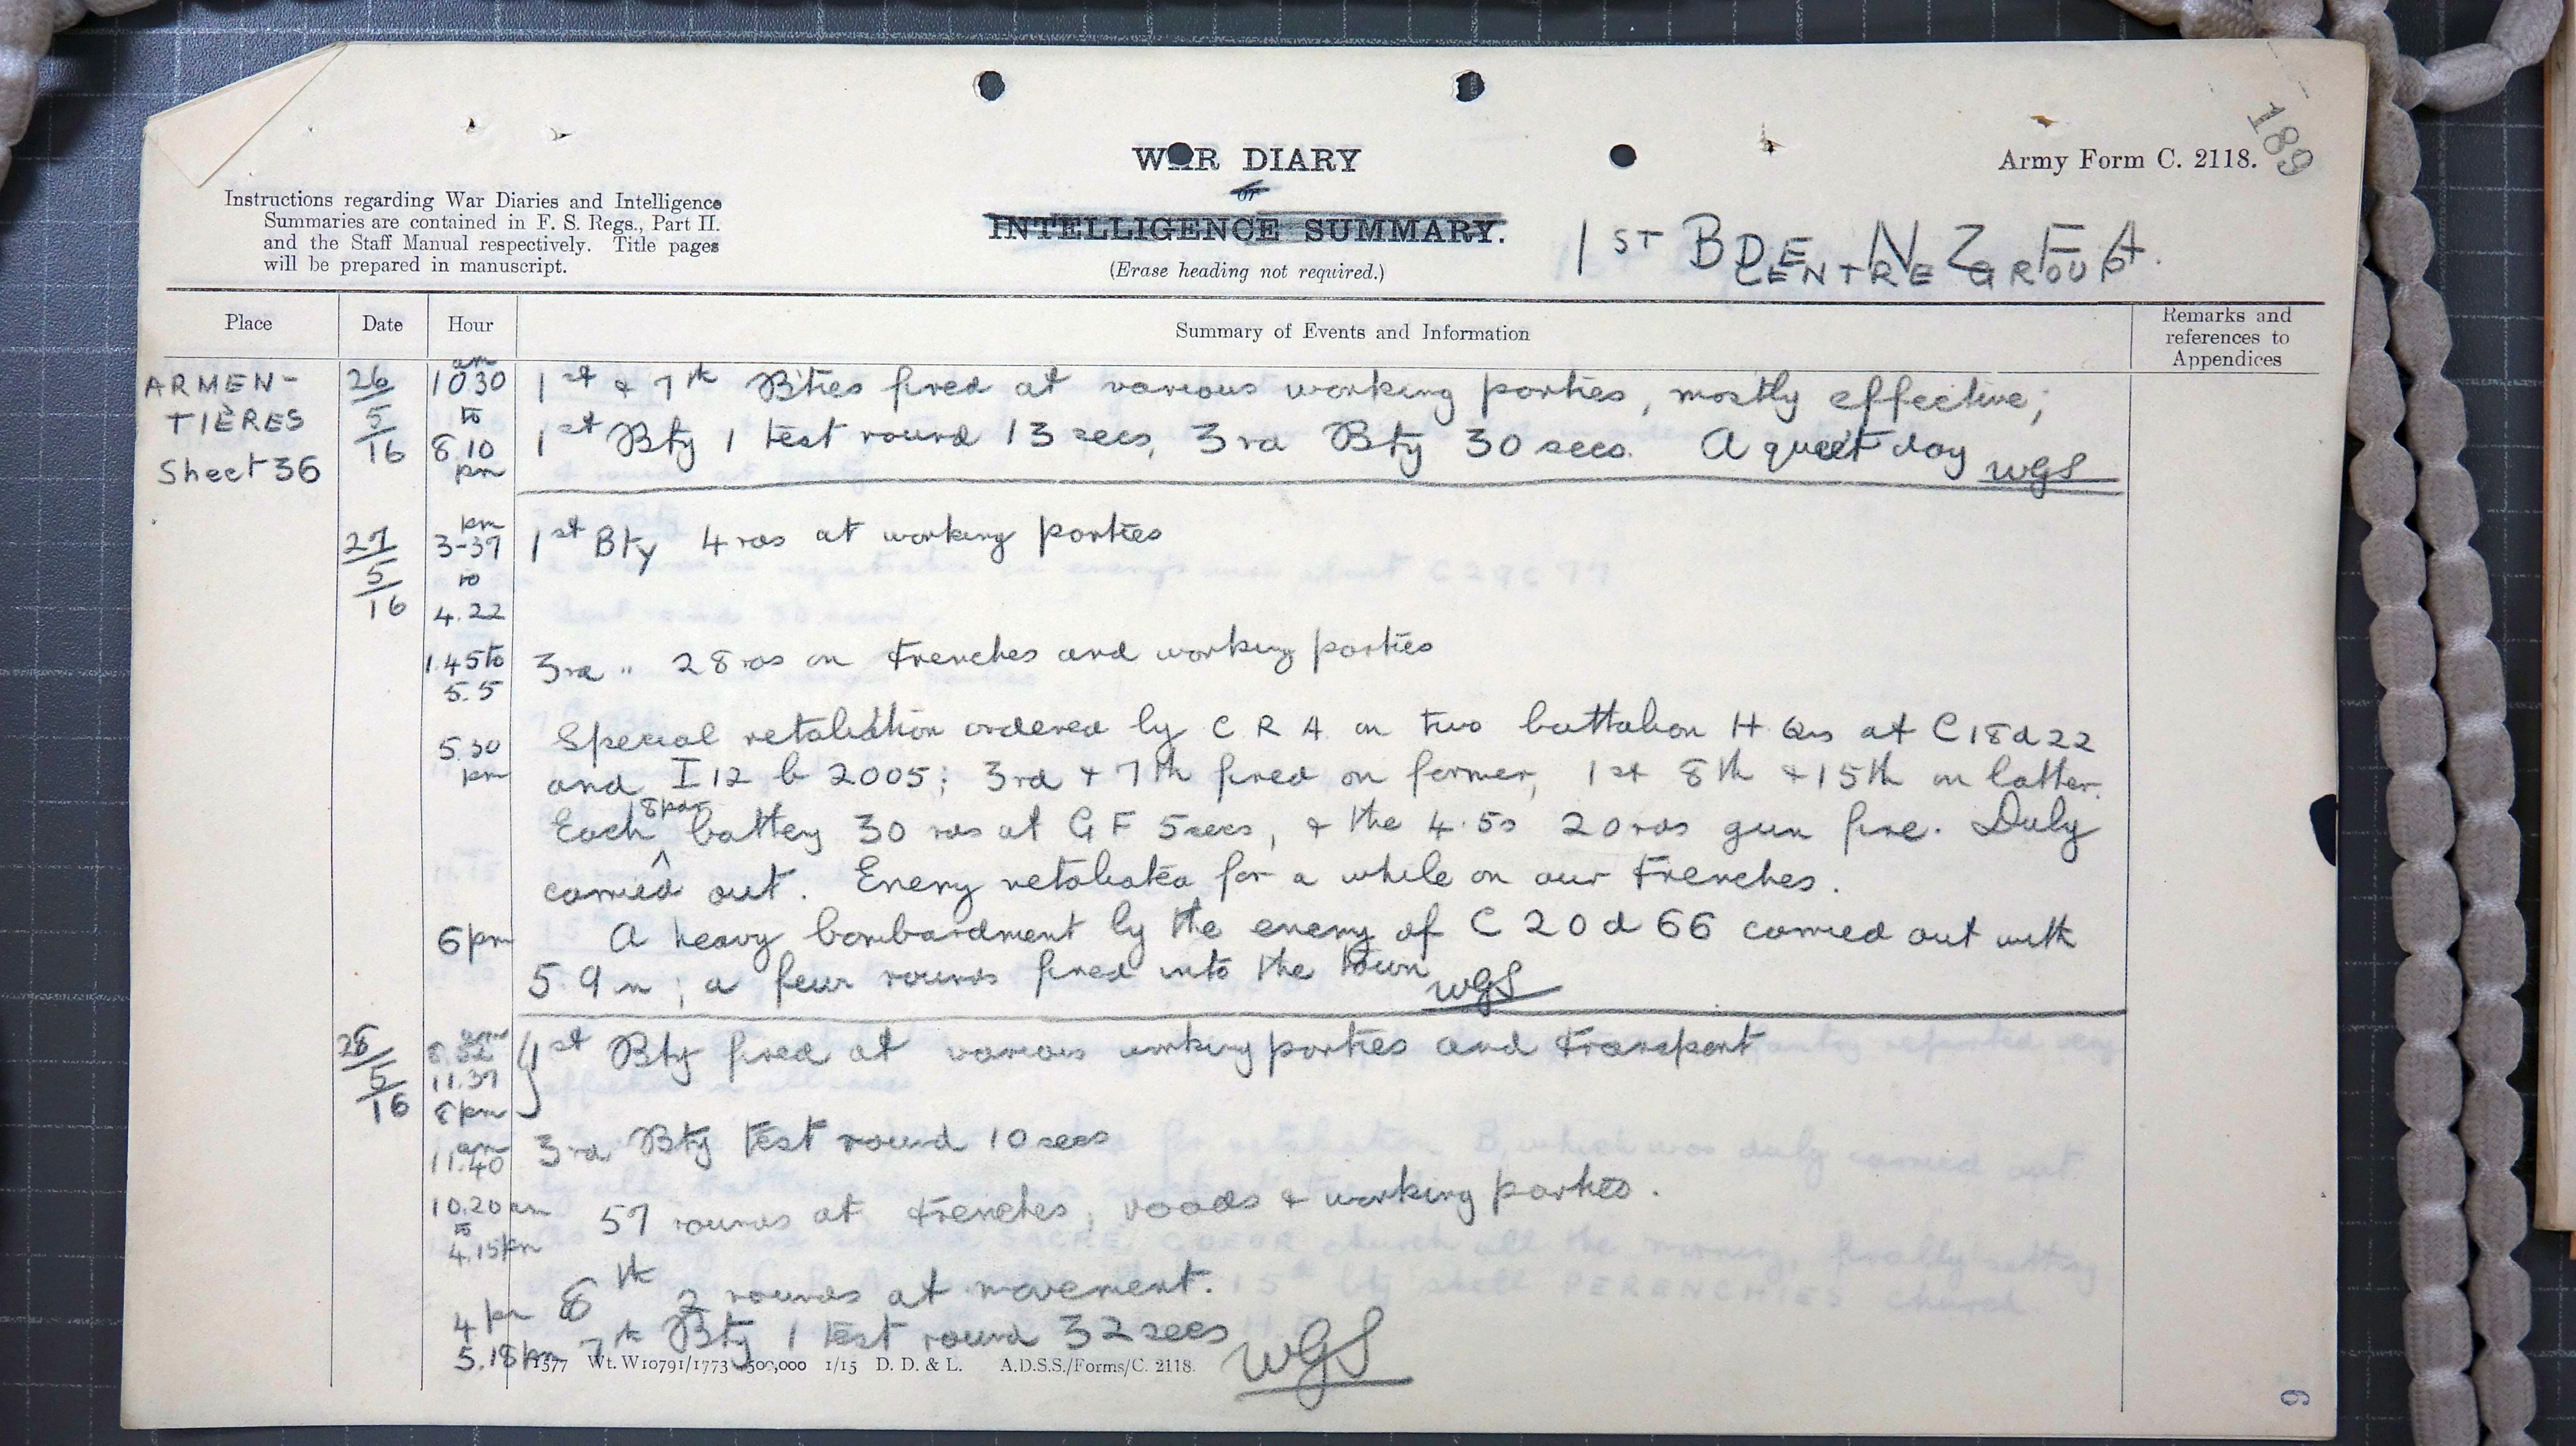 189
WAR DIARY
or
INTELLIGENCE SUMMARY.
(Erase heading not required.)
Army Form C. 2118.
Instructions regarding War Diaries and Intelligence
Summaries are contained in F. S. Regs., Part II.
and the Staff Manual respectively. Title pages
will be prepared in manuscript.
1ST BDE N Z F A.
CENTRE GROUP
Place Date Hour Summary of Events and Information Remarks and references to Appendices
ARMEN-
TIÈRES
Sheet 36
26/5/16
am
10 30
to
8.10
pm
1st & 7th Bties fired at various working parties, mostly effective;
1st Bty 1 test round 13 secs, 3rd Bty 30 secs. A quiet day WGS
27/5/16
pm
3-37
to
4.22
1st Bty 4 rds at working parties
1.45 to
5.5
3rd " 28 rds on trenches and working parties
5.30
pm
Special retaliation ordered by C R A on two battalion H Qrs at C18d22
and I 12 b 2005; 3rd + 7th fired on former, 1st 8th + 15th on latter.
Each 18pdr battey 30 rds at G F 5secs, + the 4.5s 20rds gun fire. Duly
carried out. Enemy retaliated for a while on our trenches.
6pm
A heavy bombardment by the enemy of C 20 d 66 carried out with
5.9 ; a few rounds fired into the town WGS
28/5/16
am
8.52
11.37
8pm
1st Bty fired at various working parties and transport
am
11.40
3rd Bty test round 10 secs
10.20 am
to
4.15pm
57 rounds at trenches, roads + working parties.
4 pm 8th 2 rounds at movement.
5.18pm 7th Bty 1 test round 32 secs WGS
1577 Wt. W10791/1773 500,000 1/15 D. D. & L. A.D.S.S./Forms/C. 2118.
6